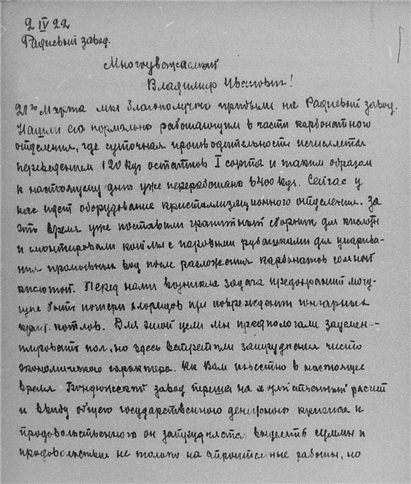 2 IV 22
Радиевый завод.
Многоуважаемый
Владимир Иванович!
20го Марта мы благополучно прибыли на Радиевый завод.
Нашли его нормально работающим в части карбонатного
отделения, где суточная производительность исчисляется
переведением 120 кгр остатков I сорта и таким образом
к настоящему дню уже переработано 6400 кгр. Сейчас у
нас идет оборудование кристаллизационного отделения. За
это время уже поставили гранитный сборник для кислоты
и смонтировали котлы с паровыми рубашками для упарива-
ния промывных вод после разложения карбонатов соляной
кислотой. Перед нами возникла задача предохранить могу-
щие быть потери хлоридов при повреждении
котлов. Для этой цели мы предполагали зацемен-
тировать пол, но здесь встретили затруднения чисто
экономического характера. Как Вам известно в настоящее
время Бондюжский завод перешел на хозяйственный расчет
и ввиду общего государственного денежного кризиса и
продовольственного он затрудняется выдавать суммы и
продовольствие не только на строительные работы, но